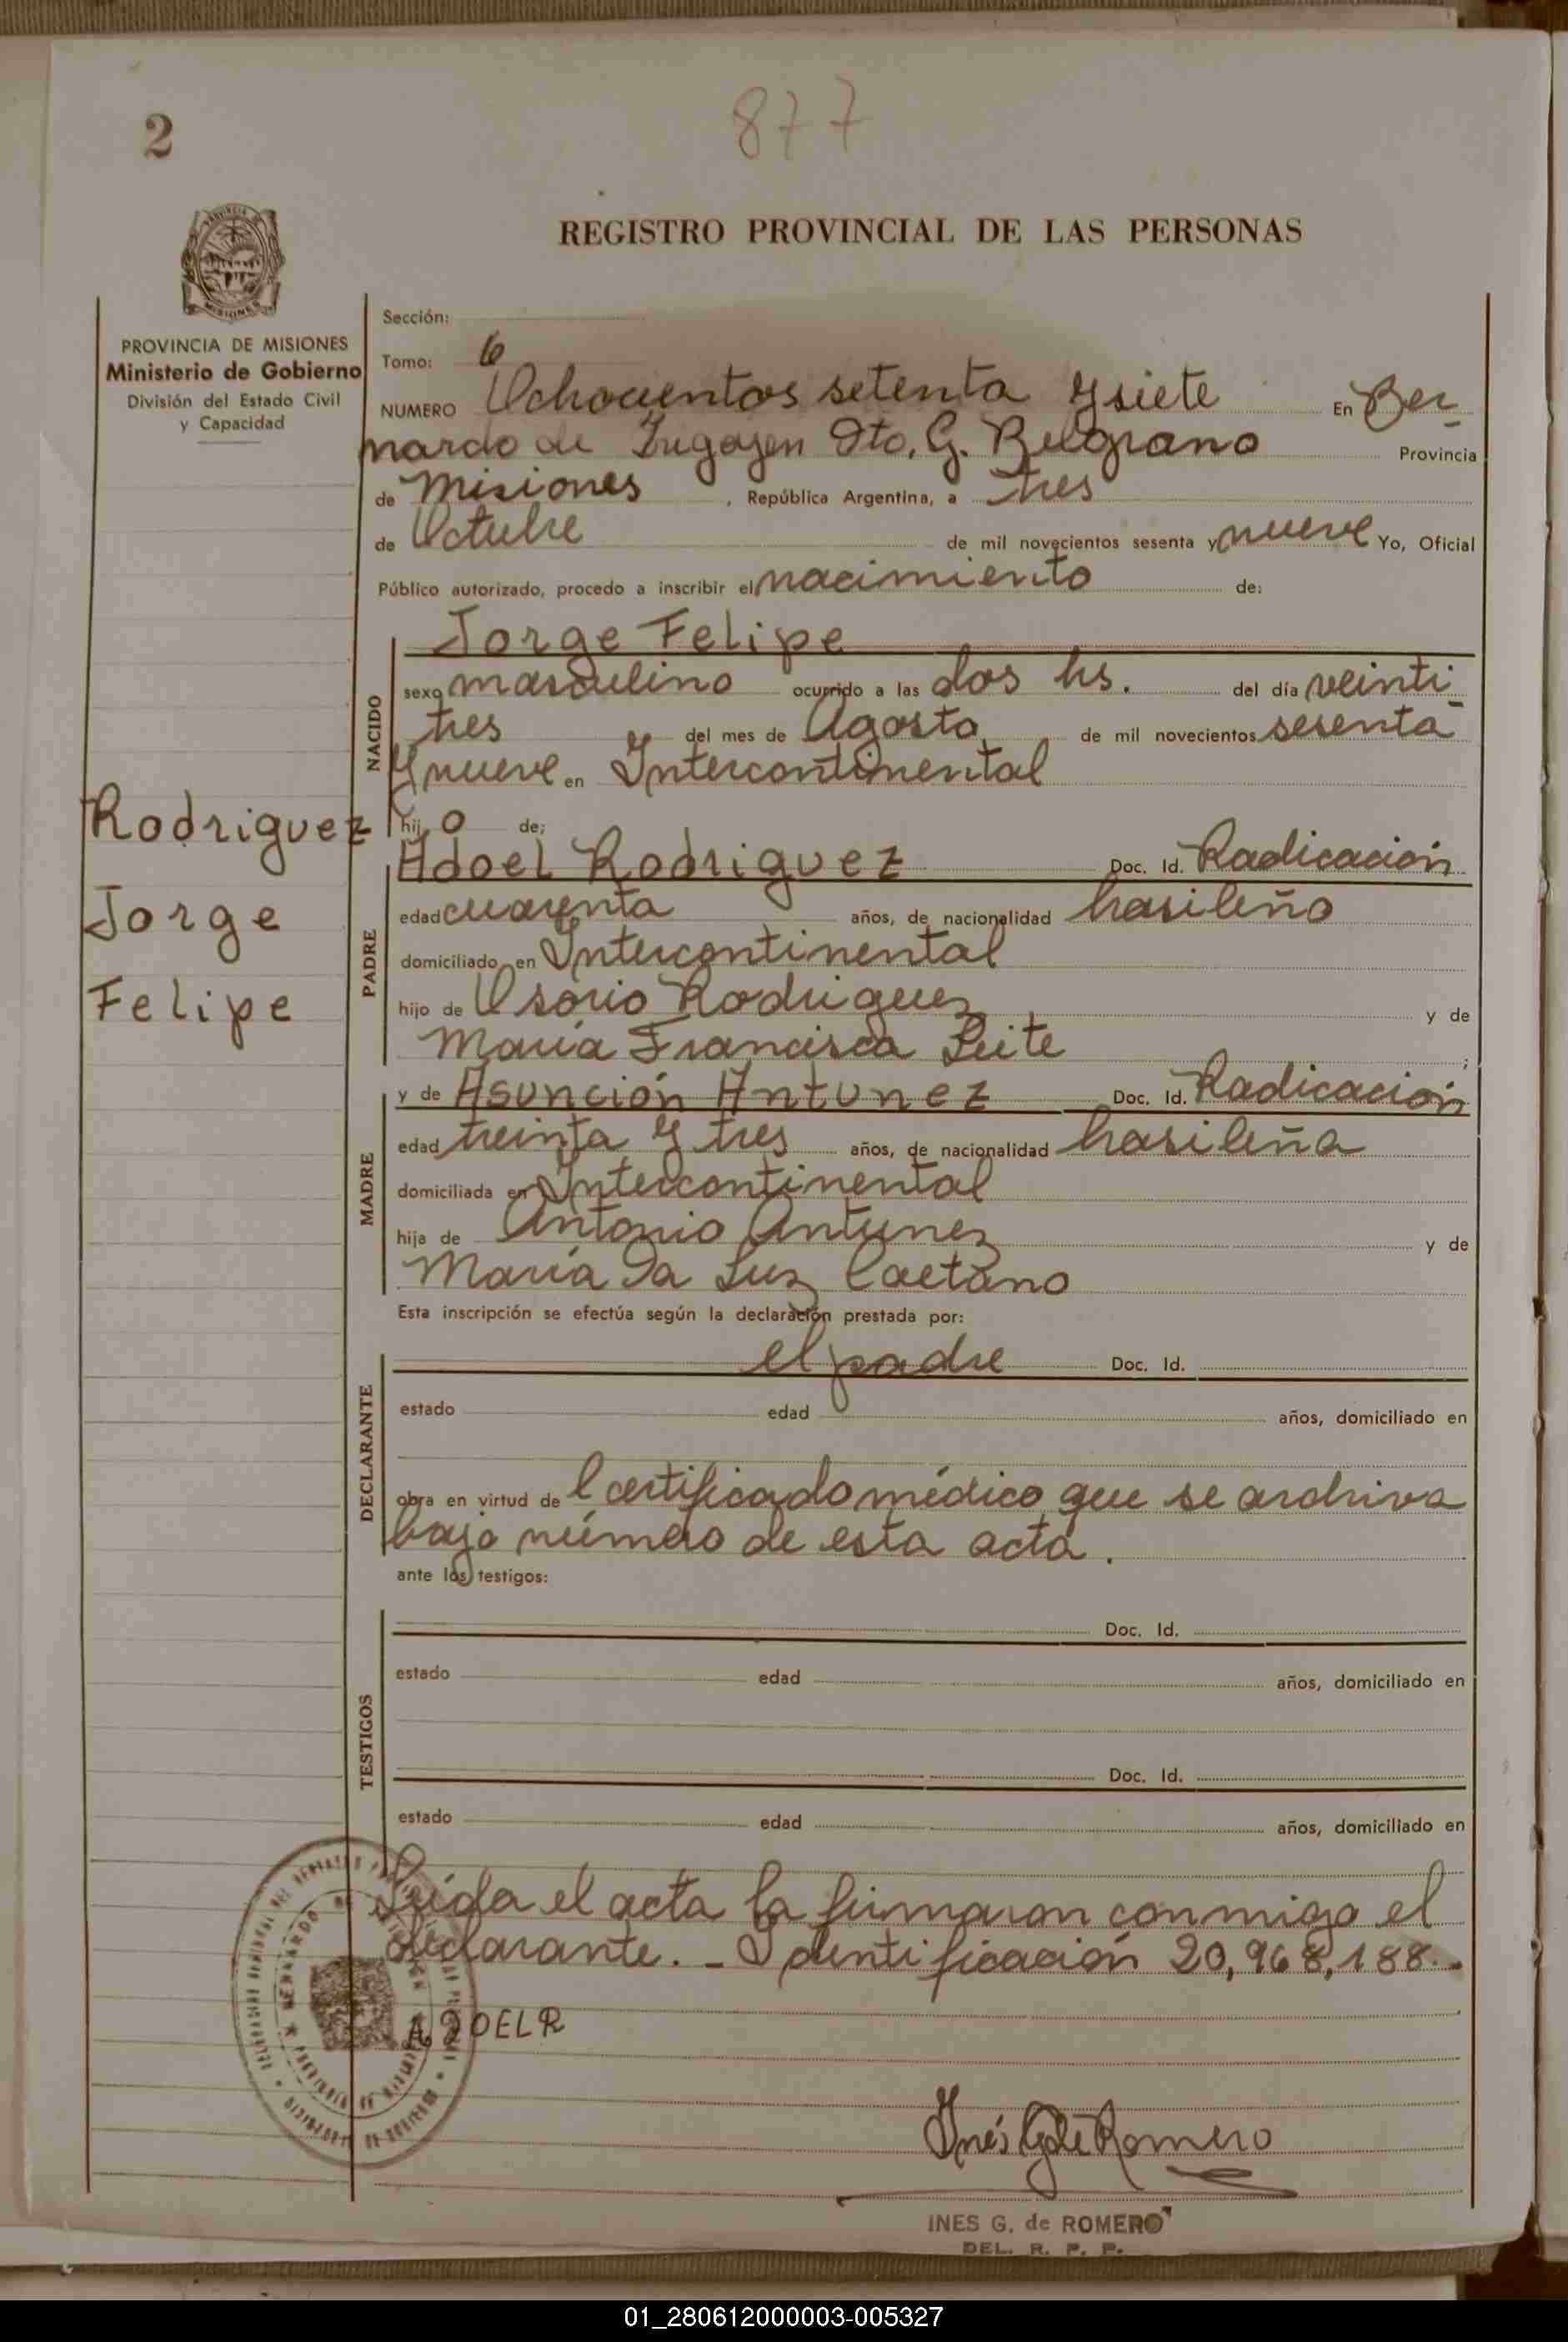 2
877
REGISTRO PROVINCIAL DE LAS PERSONAS
PROVINCIA DE MISIONES
Ministerio de Gobierno
División del Estado Civil
y Capacidad
Sección:
Tomo: 6
NUMERO Ochocientos setenta y siete En Ber-
nardo de Irugoyen Dto. G. Belgrano Provincia
de Misiones, República Argentina, a tres
de Octubre de mil novecientos sesenta y nueve Yo, Oficial
Público autorizado, procedo a inscribir el nacimiento de:
Jorge Felipe
NACIDO
sexo masculino ocurrido a las dos hs. del día veinti-
tres del mes de Agosto de mil novecientos sesenta
y nueve en Intercontinental
hijo de;
Rodriguez
Jorge
Felipe
PADRE
Adoel Rodriguez Doc. Id. Radicación
edad cuarenta años, de nacionalidad brasileño
domiciliado en Intercontinental
hijo de Osorio Rodriguez y de
María Francisca Leite;
MADRE
y de Asunción Antunez Doc. Id. Radicación
edad treinta y tres años, de nacionalidad brasileña
domiciliada en Intercontinental
hija de Antonio Antunez y de
María Da Luz Caetano
Esta inscripción se efectúa según la declaración prestada por:
DECLARANTE
el padre Doc. Id.
estado edad años, domiciliado en
obra en virtud del certificado médico que se archiva
bajo número de esta acta.
ante los testigos:
TESTIGOS
Doc. Id.
estado edad años, domiciliado en
Doc. Id.
estado edad años, domiciliado en
Leída el acta la firmaron conmigo el
declarante. - Identificación 20,968,188.-
ADOEL R
Inés G de Romero
INES G. de ROMERO
DEL. R. P. P.
01_280612000003-005327